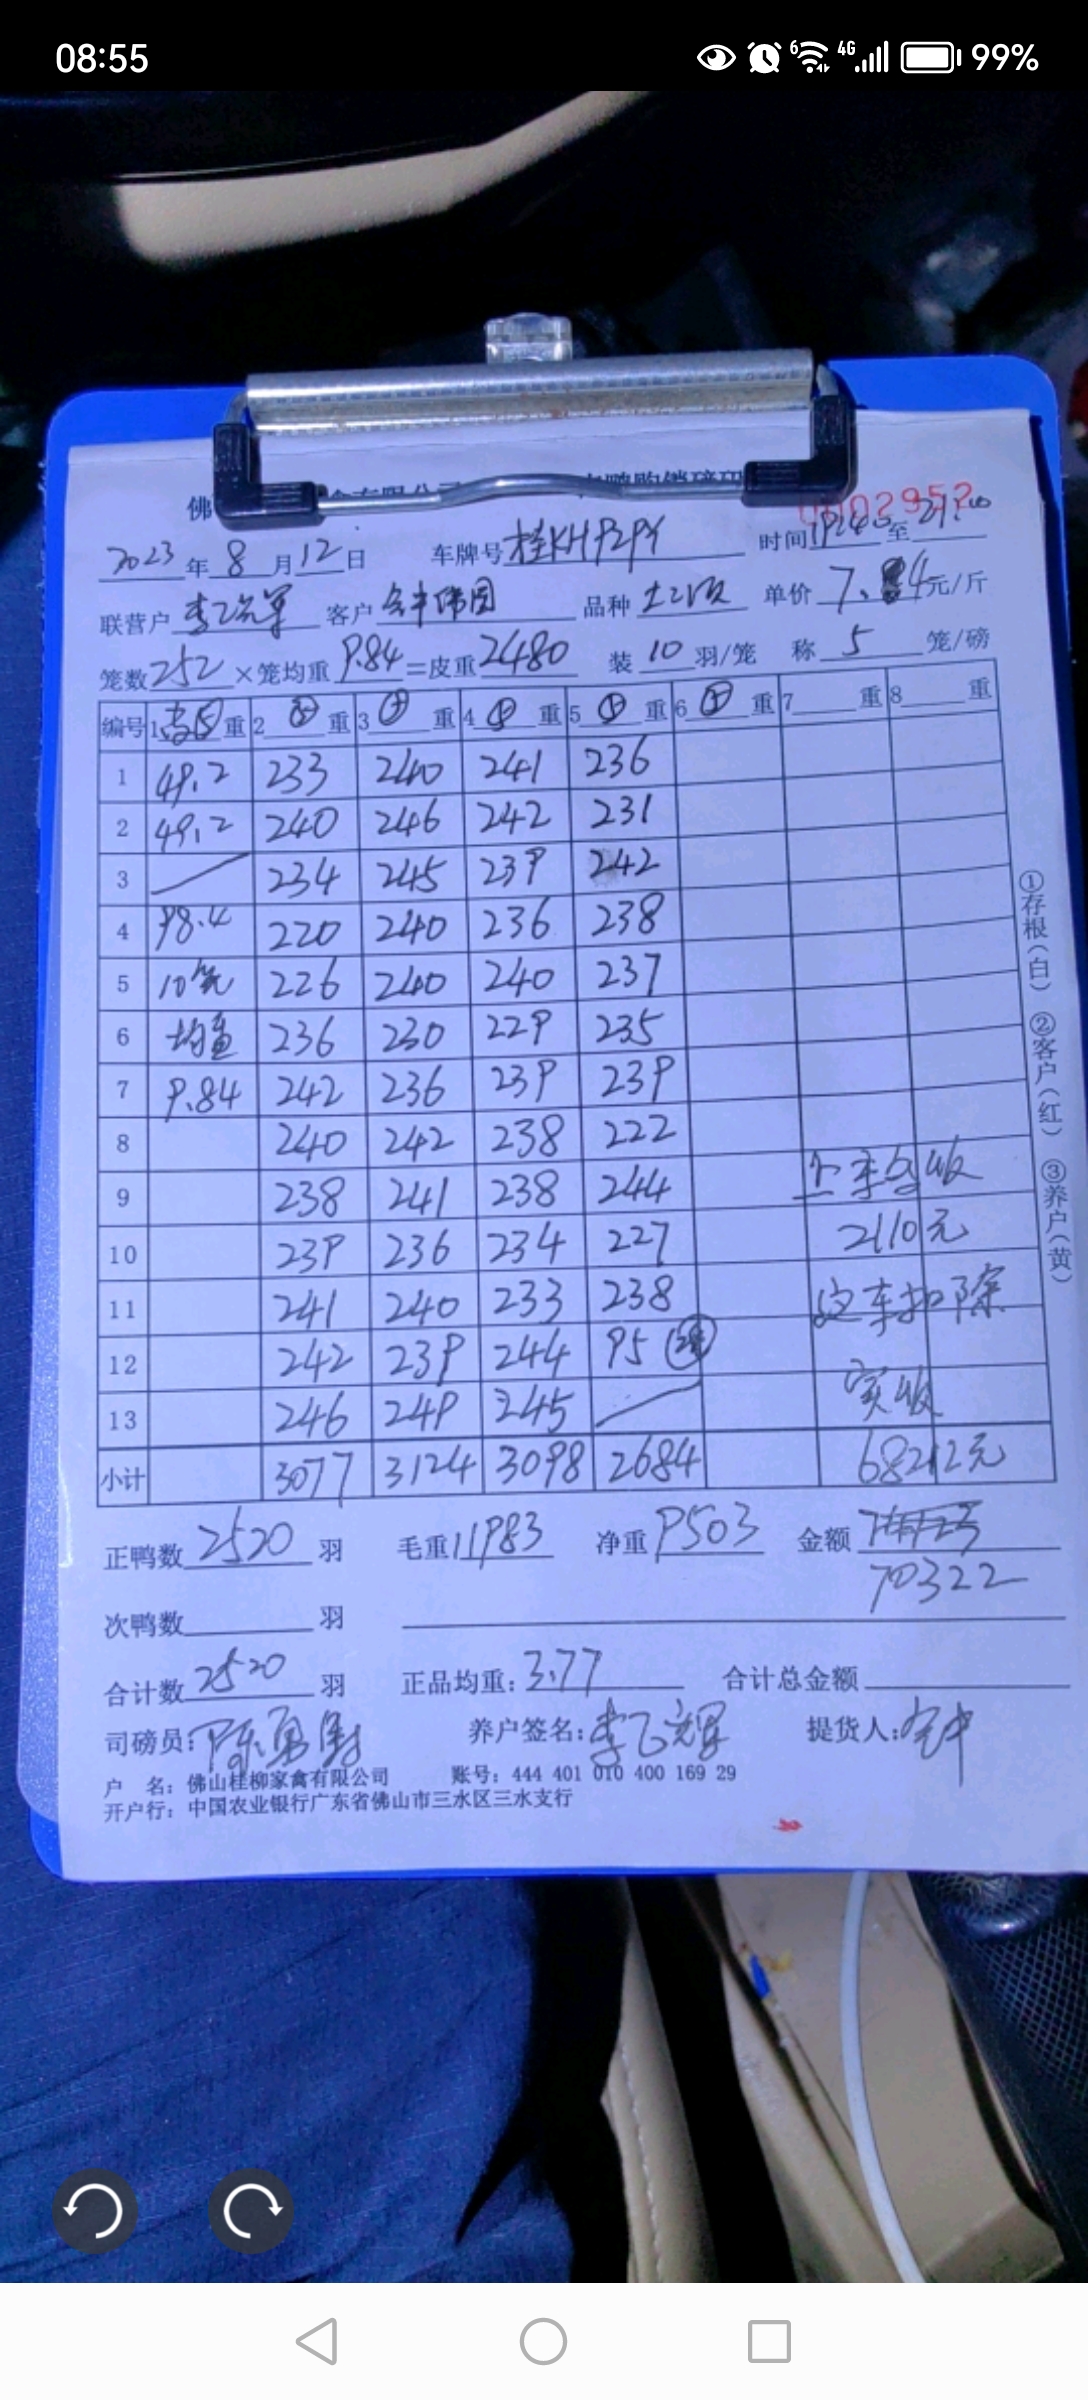 08:55 6 4G 99%
佛
0002952
2023年8月12日 车牌号桂KH 时间 至21:00
联营户 客户 品种 单价7.4元/斤
笼数252×笼均重9.84=皮重2480 装10羽/笼 称5笼/磅
编号 1 重 2 重 3 重 4 重 5 重 6 重 7 重 8 重
1 49.2 233 240 241 236
2 49.2 240 246 242 231
3 234 245 239 242
4 98.4 220 240 236 238
5 10笼 226 240 240 237
6 均重 236 230 229 235
7 9.84 242 236 239 239
8 240 242 238 222
9 238 241 238 244 上车多收
10 239 236 234 227 2110元
11 241 240 233 238 这车扣除
12 242 239 244 95
13 246 249 245 实收
小计 3077 3124 3098 2684 68212元
正鸭数2520羽 毛重11983 净重9503 金额
70322
次鸭数 羽
合计数2520羽 正品均重:3.77 合计总金额
司磅员: 养户签名: 提货人:
户 名: 佛山桂柳家禽有限公司 账号: 444 401 010 400 169 29
开户行: 中国农业银行广东省佛山市三水区三水支行
①存根(白) ②客户(红) ③养户(黄)